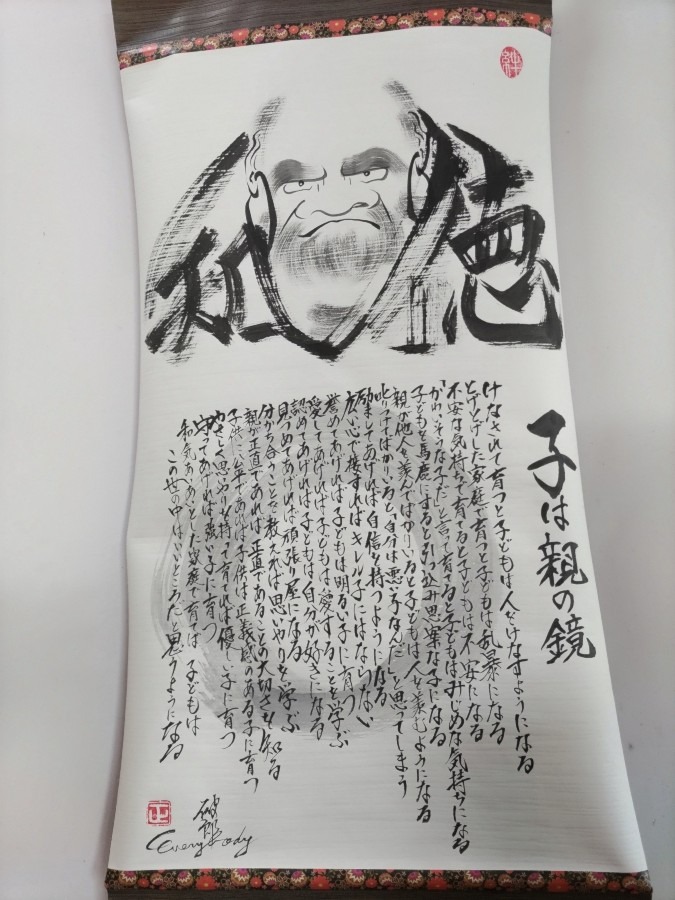 子は親の鏡
けなされて育つと子どもは人をけなすようになる
とげとげした家庭で育つと子どもは乱暴になる
不安な気持ちで育てると子どもは不安になる
「かわいそうな子だ」と言って育てると子どもはみじめな気持ちになる
子どもを馬鹿にすると引っ込み思案な子になる
親が他人を羨んでばかりいると子どもは人を羨むようになる
叱りつけてばかりいると自分は悪い子なんだと思ってしまう
励ましてあげれば自信を持つようになる
広い心で接すればキレル子にはならない
誉めてあげれば子どもは明るい子に育つ
愛してあげれば子どもは愛することを学ぶ
認めてあげれば子どもは自分が好きになる
見つめてあげれば頑張り屋になる
分かち合うことを教えれば思いやりを学ぶ
親が正直であれば正直であることの大切さを知る
子供に公平であれば子供は正義感のある子に育つ
やさしく思いやりを持って育てれば優しい子に育つ
守ってあげれば強い子に育つ
和気あいあいとした家庭で育てば子どもは
この世の中はいいところだと思うようになる
Everybody